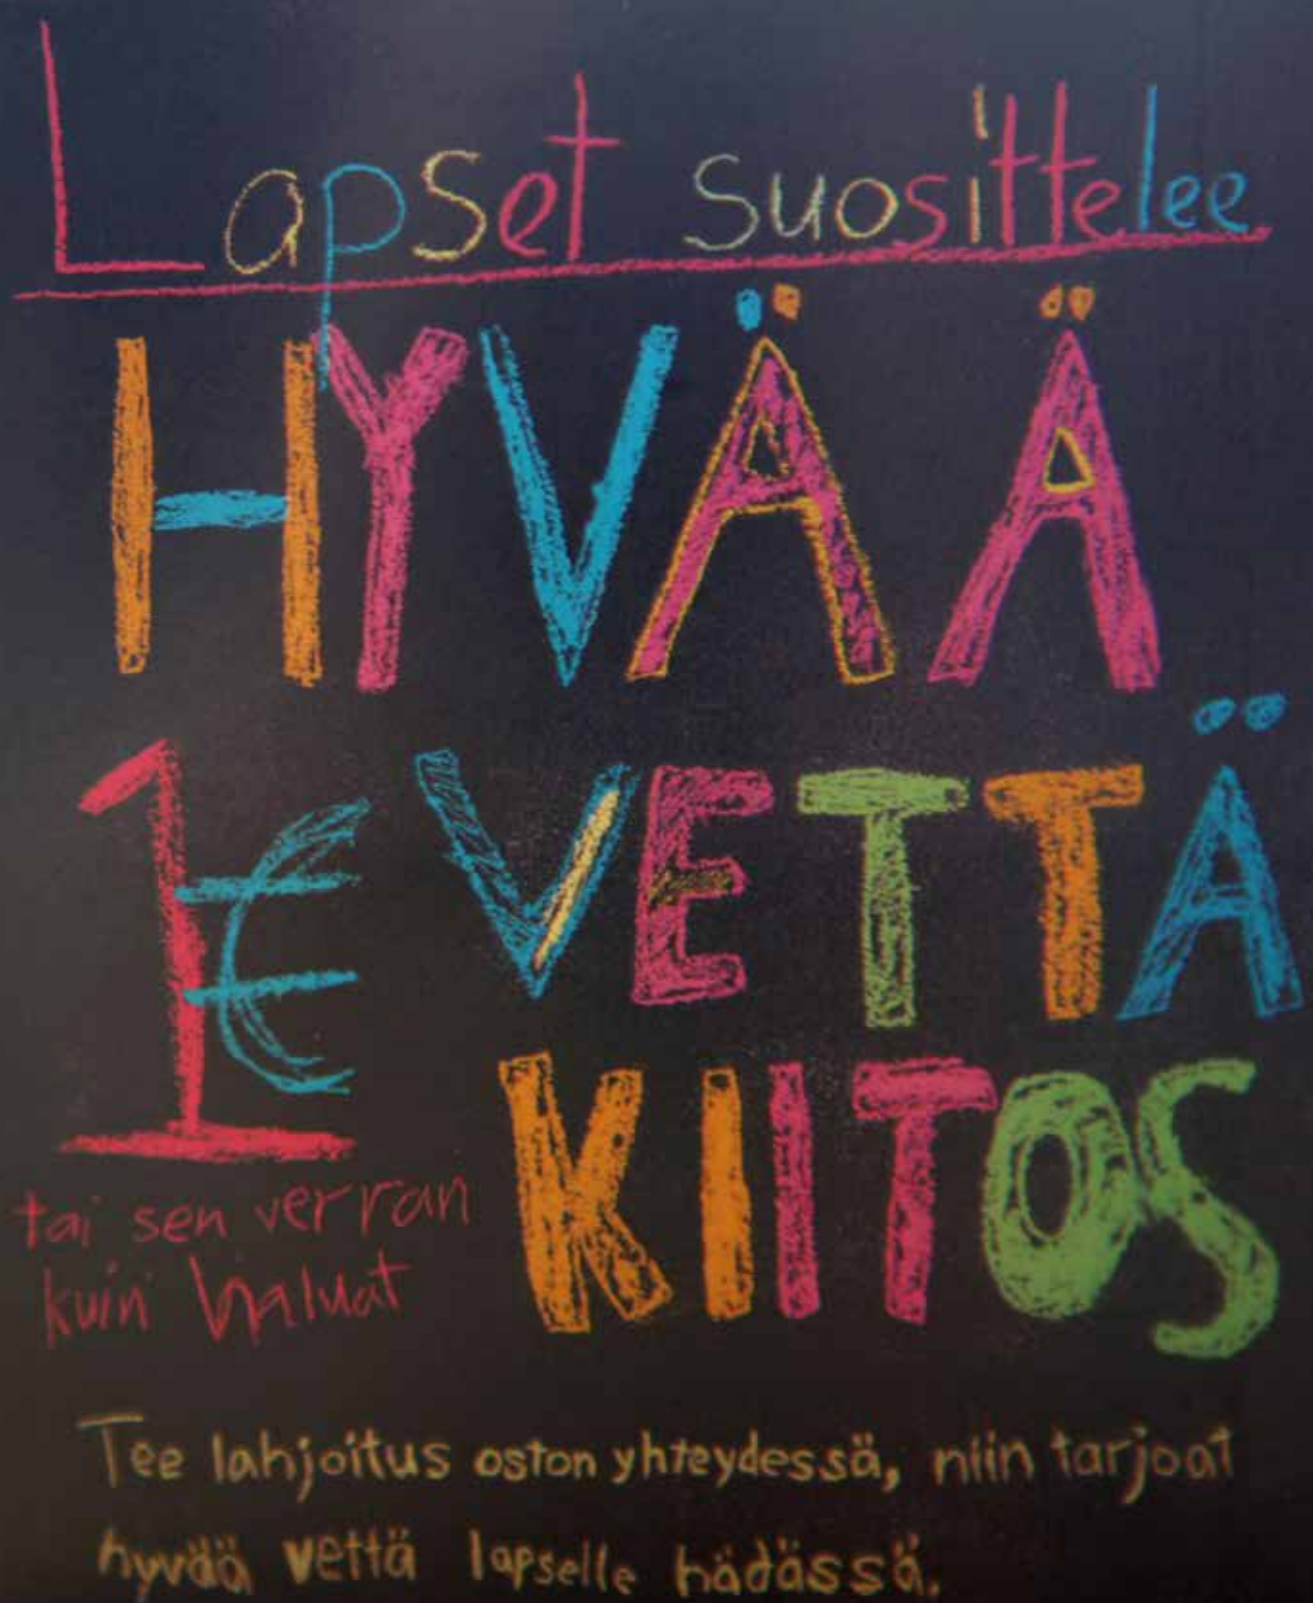 Lapset suosittelee
HYVÄÄ
1€ VETTÄ
KIITOS
tai sen verran
kuin haluat
Tee lahjoitus oston yhteydessä, niin tarjoat
hyvää vettä lapselle hädässä.